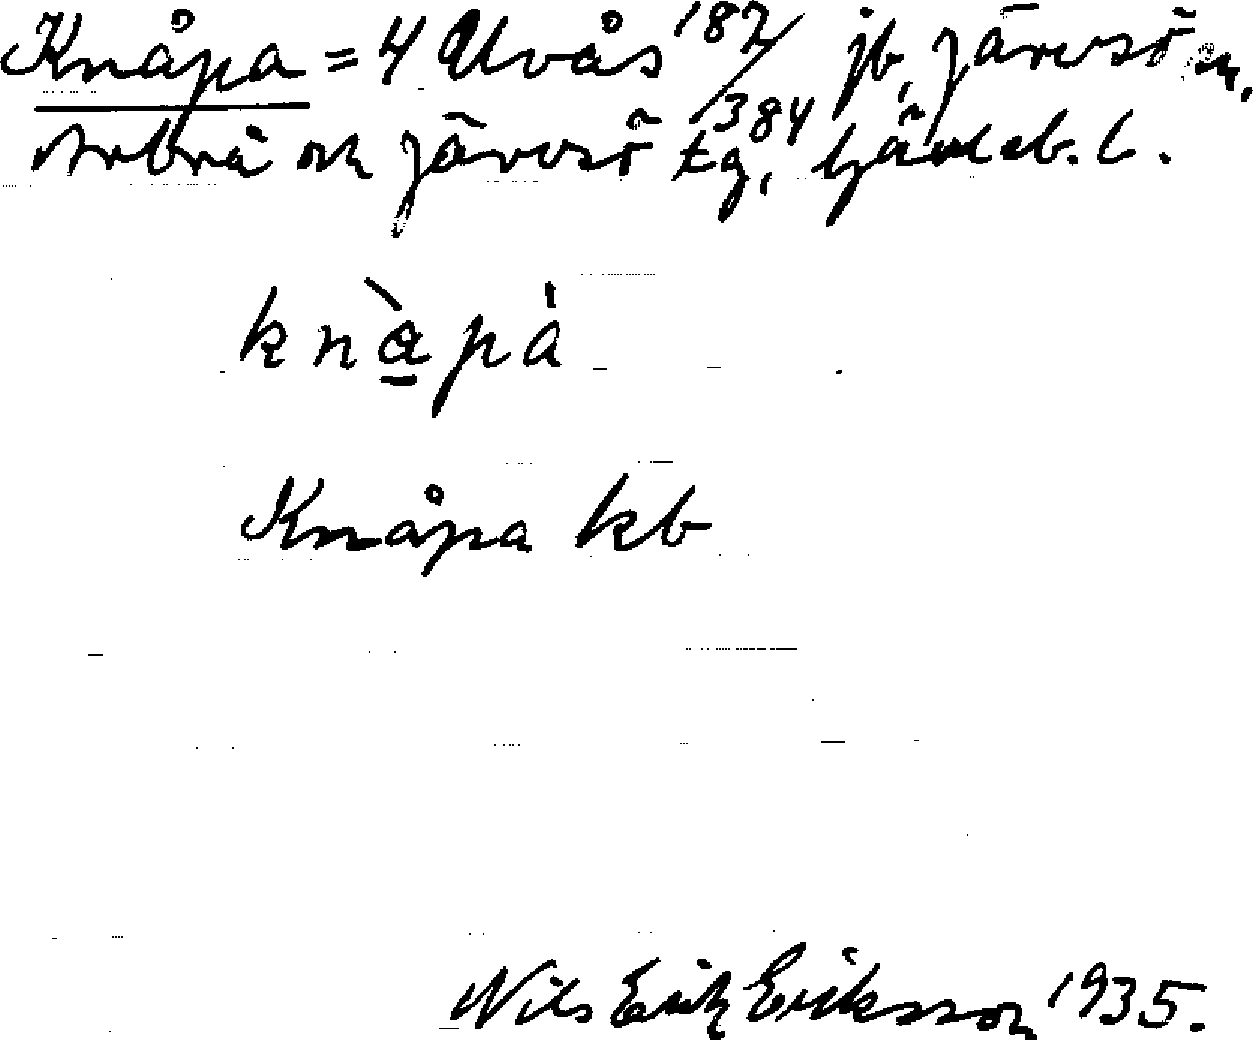 Knåpa = 4 Ulvås 187/384 jb, Järvsö sn,
Arbrå och Järvsö tg, Gävleb. l.
knàpà
Knåpa kb
Nils Erik Eriksson 1935.